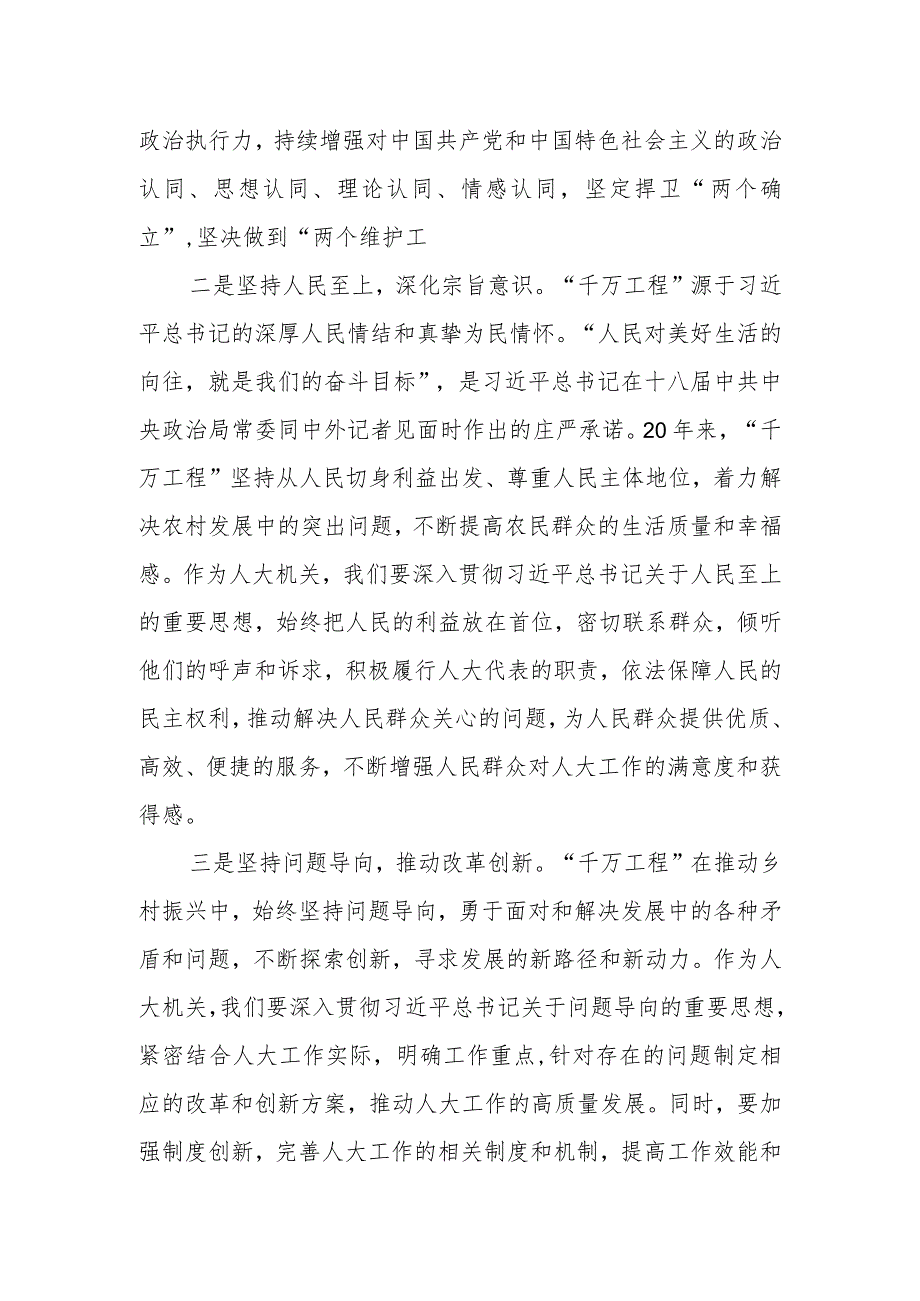 政治执行力，持续增强对中国共产党和中国特色社会主义的政治
认同、思想认同、理论认同、情感认同，坚定捍卫“两个确
立”,坚决做到“两个维护工
二是坚持人民至上，深化宗旨意识。“千万工程”源于习近
平总书记的深厚人民情结和真挚为民情怀。“人民对美好生活的
向往，就是我们的奋斗目标”，是习近平总书记在十八届中共中
央政治局常委同中外记者见面时作出的庄严承诺。20年来，“千
万工程”坚持从人民切身利益出发、尊重人民主体地位，着力解
决农村发展中的突出问题，不断提高农民群众的生活质量和幸福
感。作为人大机关，我们要深入贯彻习近平总书记关于人民至上
的重要思想，始终把人民的利益放在首位，密切联系群众，倾听
他们的呼声和诉求，积极履行人大代表的职责，依法保障人民的
民主权利，推动解决人民群众关心的问题，为人民群众提供优质、
高效、便捷的服务，不断增强人民群众对人大工作的满意度和获
得感。
三是坚持问题导向，推动改革创新。“千万工程”在推动乡
村振兴中，始终坚持问题导向，勇于面对和解决发展中的各种矛
盾和问题，不断探索创新，寻求发展的新路径和新动力。作为人
大机关,我们要深入贯彻习近平总书记关于问题导向的重要思想，
紧密结合人大工作实际，明确工作重点,针对存在的问题制定相
应的改革和创新方案，推动人大工作的高质量发展。同时，要加
强制度创新，完善人大工作的相关制度和机制，提高工作效能和